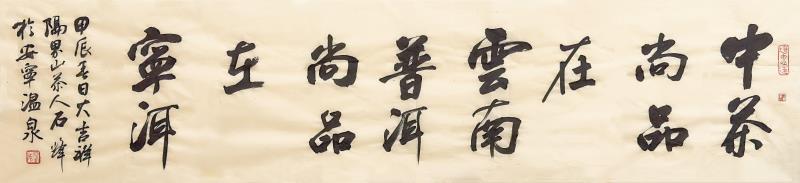 中茶
尚品
在
雲南
普洱
尚品
在
寧洱
甲辰春日大吉祥
隔界山茶人石峰
於安寧温泉